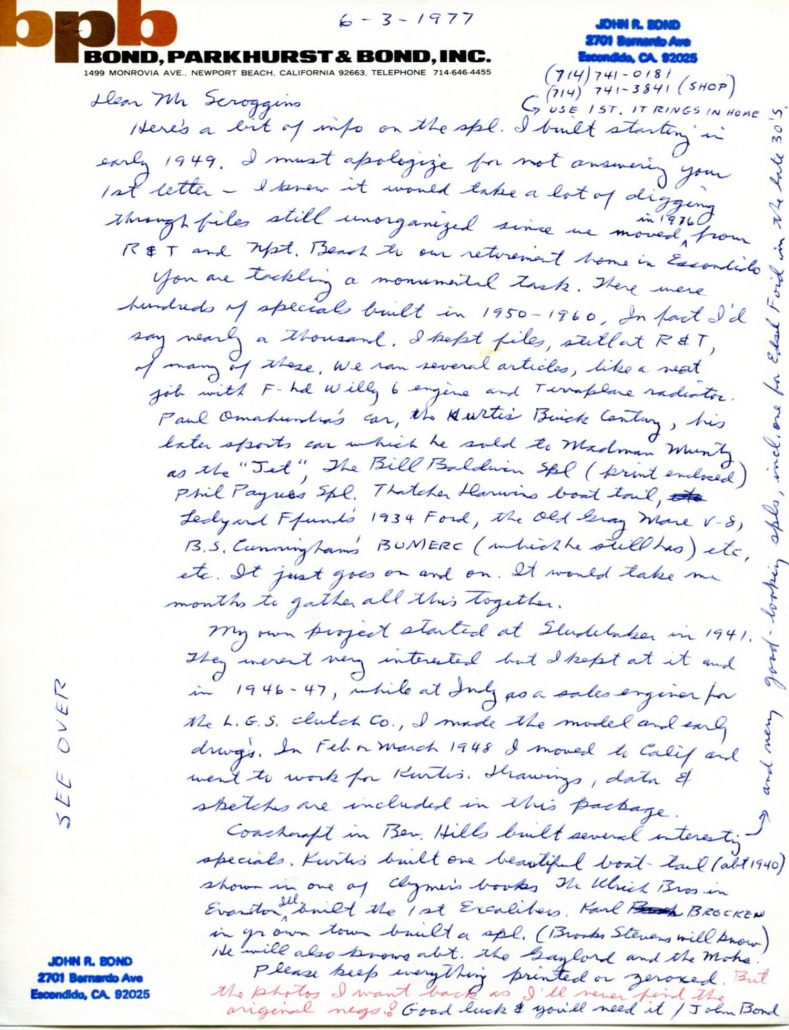 6-3-1977
bpb
BOND, PARKHURST & BOND, INC.
1499 MONROVIA AVE., NEWPORT BEACH, CALIFORNIA 92663, TELEPHONE 714-646-4455
JOHN R. BOND
2701 Bernardo Ave
Escondido, CA. 92025
(714) 741-0181
(714) 741-3841 (SHOP)
USE 1ST. IT RINGS IN HOME
Dear Mr Scroggins
Here's a bit of info on the spl. I built starting in
early 1949. I must apologize for not answering your
1st letter – I knew it would take a lot of digging
through files still unorganized since we moved in 1976 from
R & T and Npt. Beach to our retirement home in Escondido
You are tackling a monumental task. There were
hundreds of specials built in 1950-1960, In fact I'd
say nearly a thousand. I kept files, still at R & T,
of many of these. We ran several articles, like a neat
job with F-hd Willy 6 engine and Terraplane radiator.
Paul Omohundro's car, the Kurtis Buick Century, his
later sports car which he sold to Madman Muntz
as the "Jet", The Bill Baldwin Spl (print enclosed)
Phil Payne's Spl. Thatcher Darwins boat tail,
Ledyard Pfund's 1934 Ford, the Old Gray Mare V-8,
B.S. Cunningham's BUMERC (which he still has) etc,
etc. It just goes on and on. It would take me
months to gather all this together.
My own project started at Studebaker in 1941.
They weren't very interested but I kept at it and
in 1946-47, while at Indy as a sales enginer for
the L.G.S. clutch Co., I made the model and early
drwg's. In Feb or March 1948 I moved to Calif and
went to work for Kurtis. Drawings, data &
sketches are included in this package.
Coachcraft in Bev. Hills built several interestg
specials. Kurtis built one beautiful boat-tail (abt 1940)
shown in one of Clymer's books The Ulrich Bros in
Evanston Ill built the 1st Excalibers. Karl BROCKEN
in yr own town built a spl. (Brooks Stevens will know)
He will also know abt. the Gaylord and the Mohs.
Please keep everything printed or zeroxed. But
the photos I want back as I'll never find the
original negs.! Good luck & you'll need it / John Bond
→ and many good-looking spls, incl. one for Edsel Ford in the late 30's.
SEE OVER
JOHN R. BOND
2701 Bernardo Ave
Escondido, CA. 92025